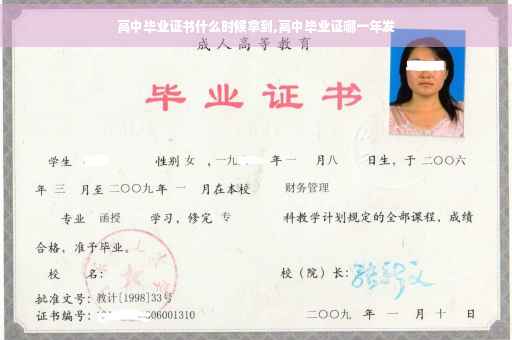 高中毕业证书什么时候拿到,高中毕业证哪一年发
成人高等教育
毕业证书
学生 性别 女 ,一九 年一 月八 日生,于二〇〇六
年 三 月至二〇〇九年 一 月在本校 财务管理
专业 函授 学习,修完 专 科教学计划规定的全部课程,成绩
合格,准予毕业。
校 名: 校(院)长:
批准文号:教计[1998]33号
证书编号: 06001310 二〇〇九 年 一 月 十 日